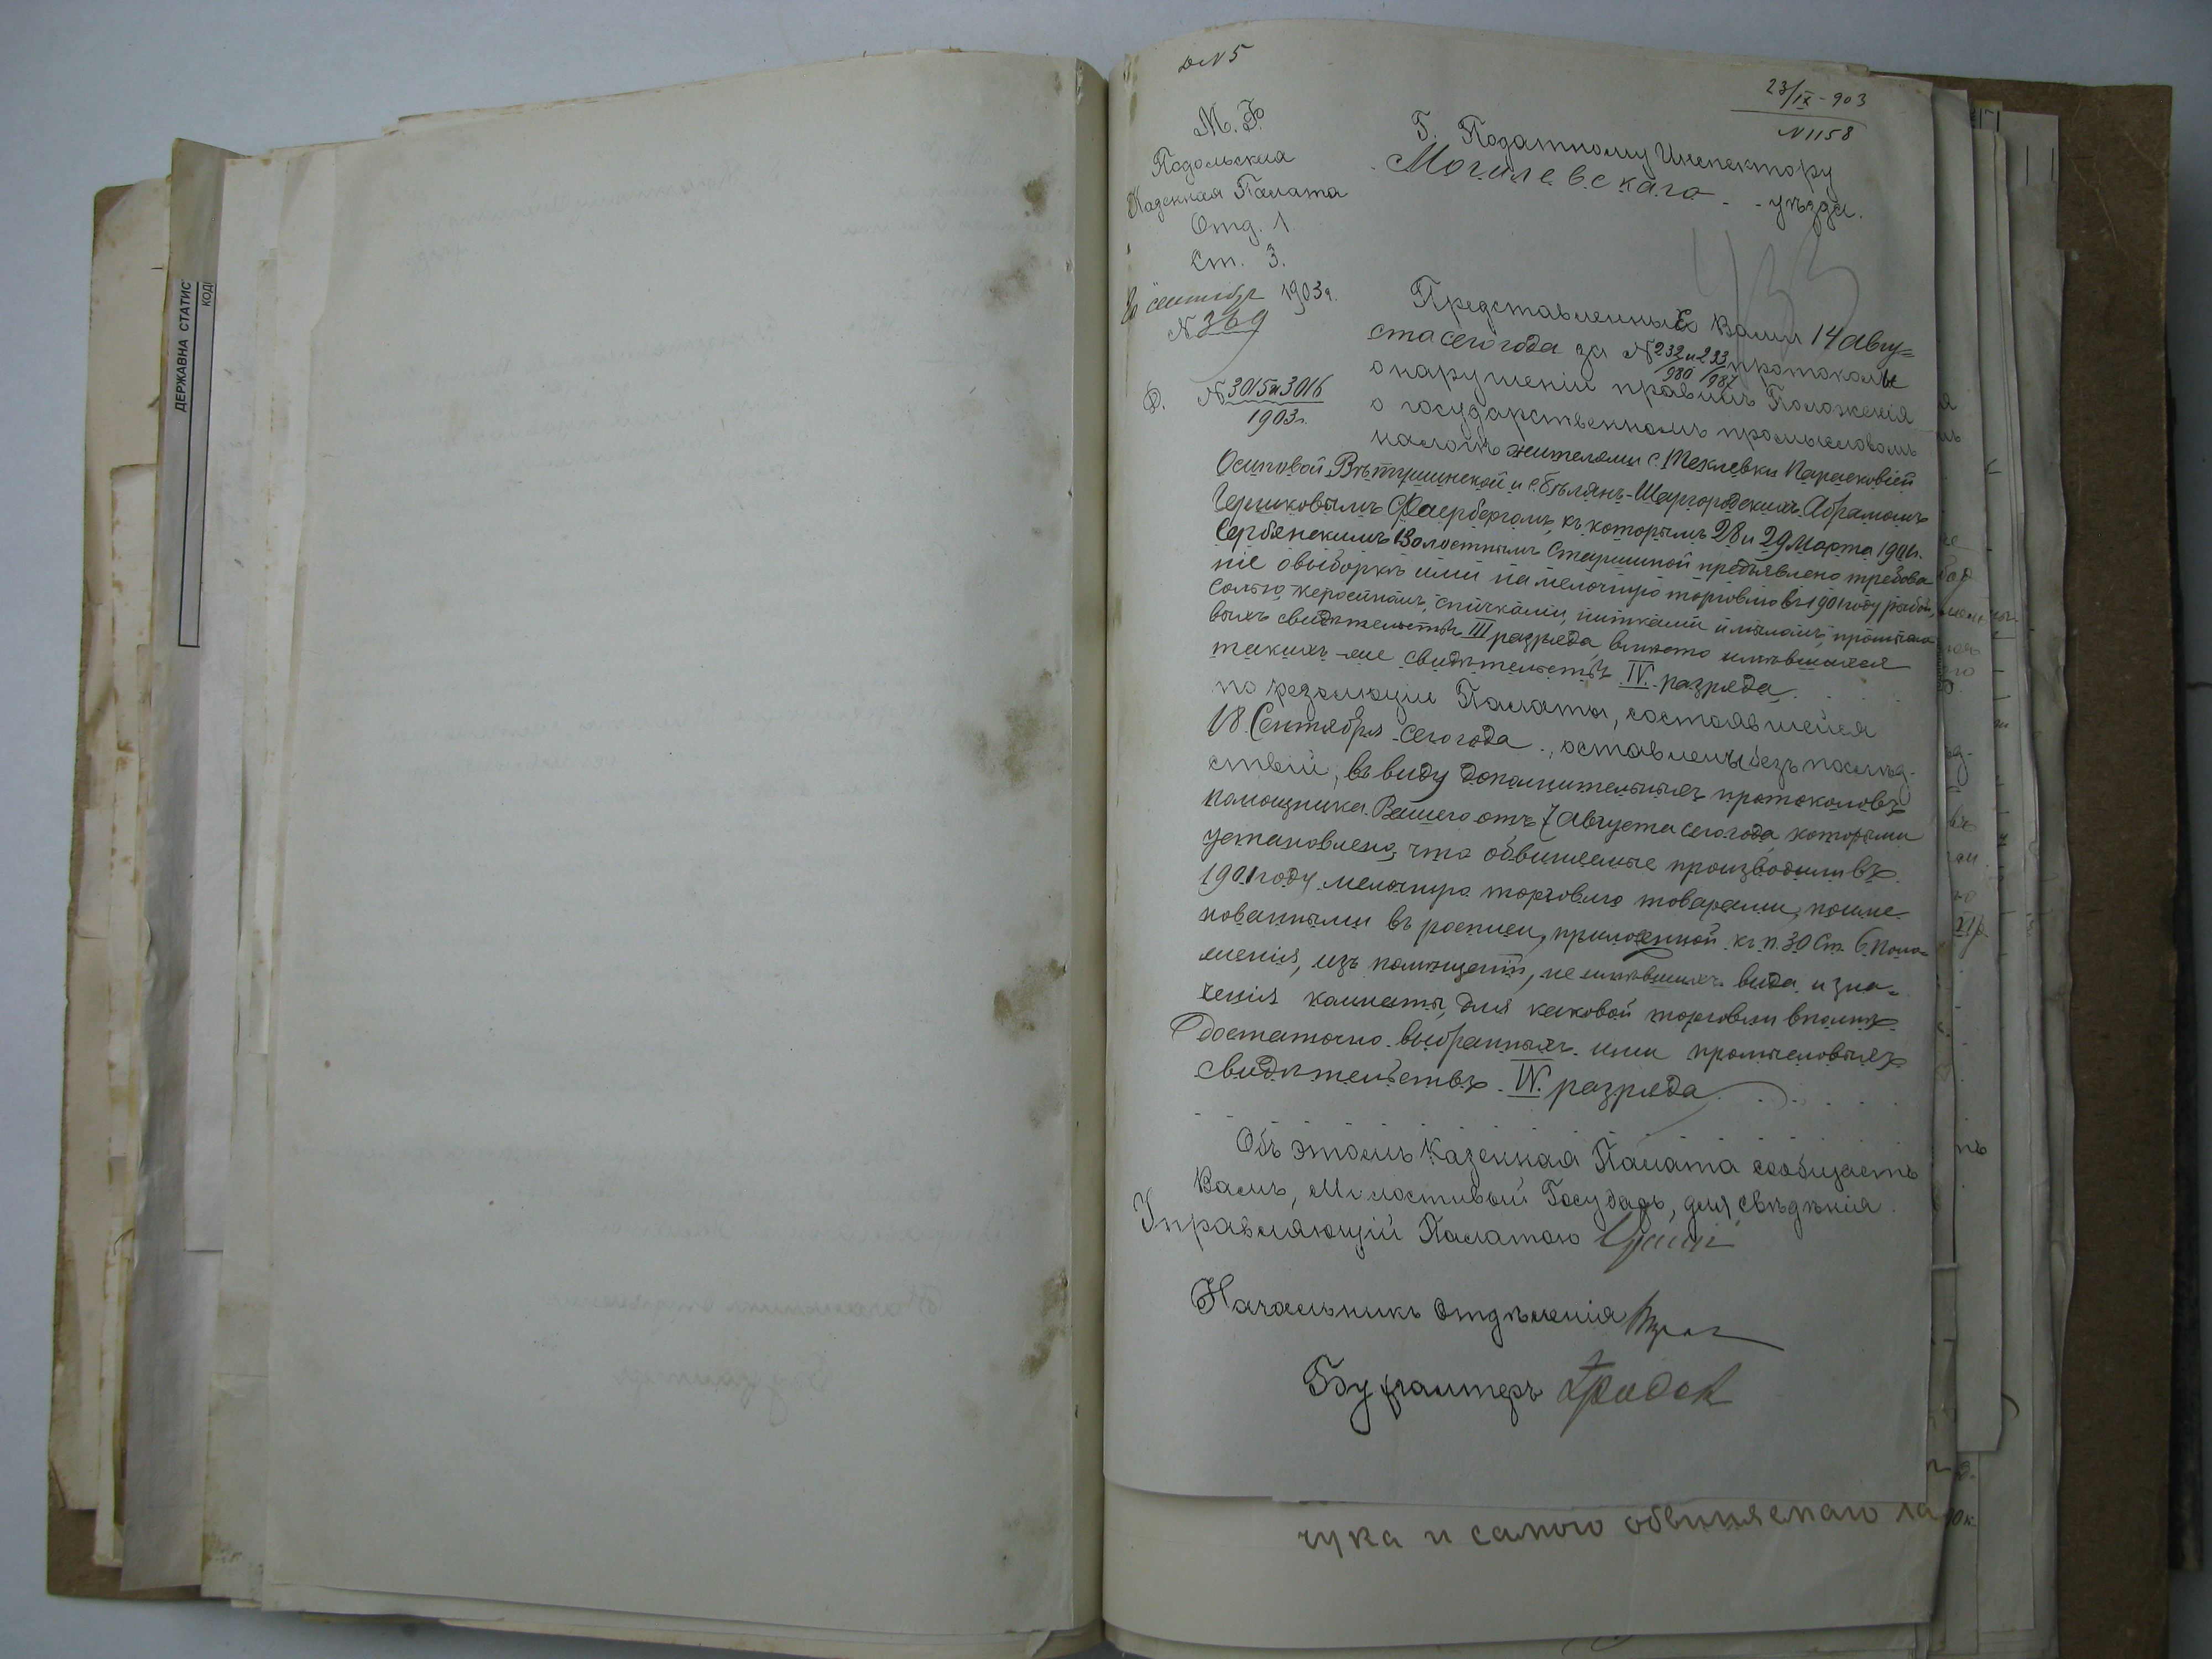 ДЕРЖАВНА СТАТИС
КОДИ
№ 5
23/IX - 903
№ 1158
М. Ф.
Подольская
Казенная Палата
Отд. 1
Ст. 3.
сентября 1903 г.
№ 369
Д. № 3015 и 3016
1903 г.
Г. Податному Инспектору
Могилевскаго уѣзда.
Представленные Вами 14 Авгу=
ста сего года за № 232 и 233 протоколы
980 987
о нарушеніи правилъ Положенія
о государственномъ промысловомъ
налогѣ жителями с. Теклевки Параскевіей
Осиповой Вѣтушинской и с. Бѣлянъ-Шаргородскихъ Абрамомъ
Гершковымъ Фаербергомъ, къ которымъ 28 и 29 Марта 1901 г.
Сербянскимъ Волостнымъ Старшиной предъявлено требова
ніе о выборкѣ ими на мелочную торговлю въ 1901 году рыбой,
солью, керосиномъ, спичками, нитками и мыломъ, промысло
выхъ свидѣтельствъ III разряда, вмѣсто имѣвшихся
такихъ-же свидѣтельствъ IV. разряда.
по резолюціи Палаты, состоявшейся
18 Сентября сего года, оставлены безъ послѣд-
ствій, въ виду дополнительныхъ протоколовъ
помощника Вашего отъ 7 Августа сего года, которыми
установлено, что обвиняемые производили въ
1901 году мелочную торговлю товарами, поиме
нованными въ росписи, приложенной къ п. 30 Ст. 6 Поло=
женія, изъ помѣщеній, не имѣвшихъ вида и зна=
ченія комнаты, для каковой торговли вполнѣ
достаточно выбранныхъ ими промысловыхъ
свидѣтельствъ IV. разряда
Объ этомъ Казенная Палата сообщаетъ
Вамъ, Милостивый Государь, для свѣдѣнія.
Управляющій Палатою
Начальникъ Отдѣленія
Бухгалтеръ
чука и самого обвиняемаго
10 к.